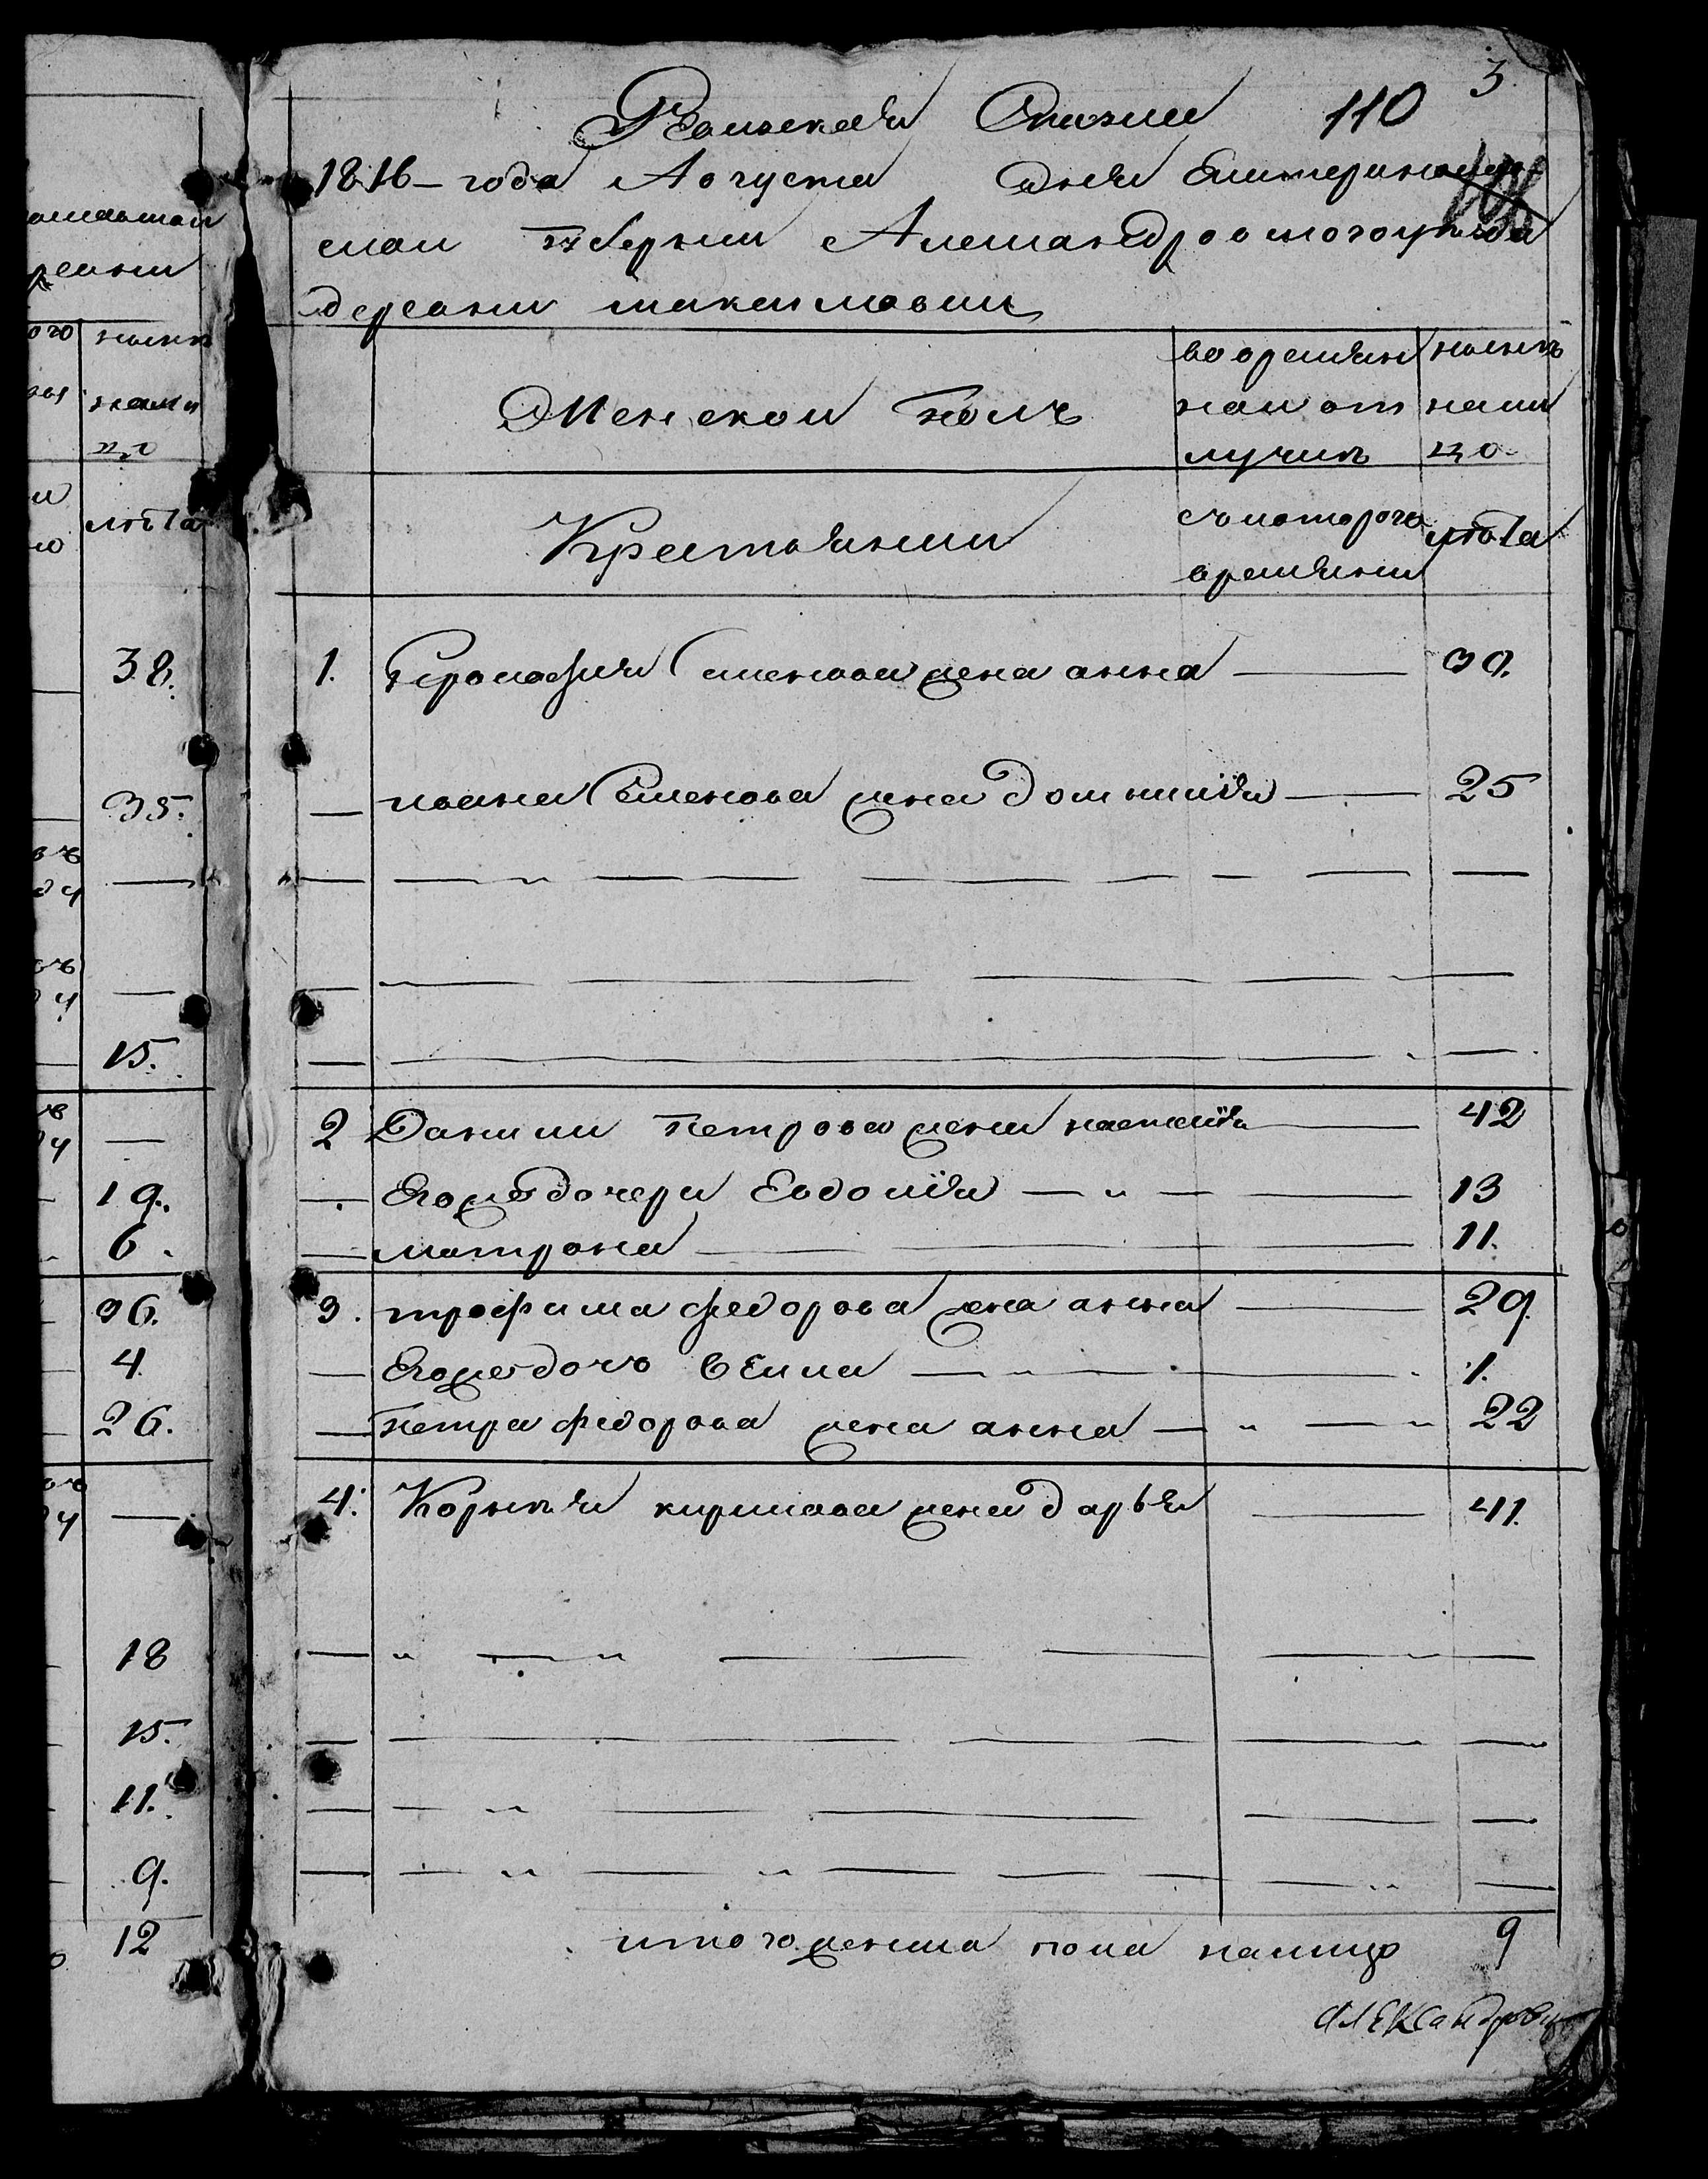 3.
Ревиская Скаски 110
1816 – года Августа дня Екатеринослав
скои губернии Александровского уезда
деревни максимовки
Женскои полъ
во времян
нои от
лучкѣ
нынѣ
нали
цо
Крестьянии
съ которого
времяни
лѣта
1. Семенова жена анна 30.
ивана Семенова жена Домникия 25
2 Данили Петрова жена настасия 42
Его же дочери Евдокия 13
матрона 11.
3. трофима федорова жена анна 29.
Его же дочь 1.
Петра федорова жена анна 22
4. Корнея кирилова жена дарья 41.
итого женска пола налицо 9
Александров
нынѣ
нали
цо
лѣта
38.
35.
15.
19.
6.
36.
4.
26.
18
15.
11.
9.
12